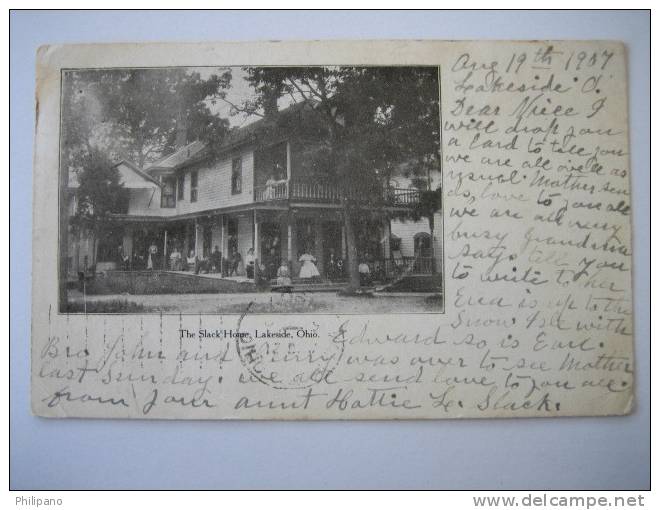 Aug 19th 1907
Lakeside O.
Dear Niece I
will drop you
a card to tell you
we are all well as
usual. Mother sen
ds, love to you all
we are all very
busy Grandma
says tell you
to write to her
is up to the
with
The Slack Home, Lakeside, Ohio.
Edward so is Earl.
Bro John and was over to see Mother
last Sunday. we all send love to you all.
from your aunt Hattie L. Slack.
Philipano
http://www.delcampe.net